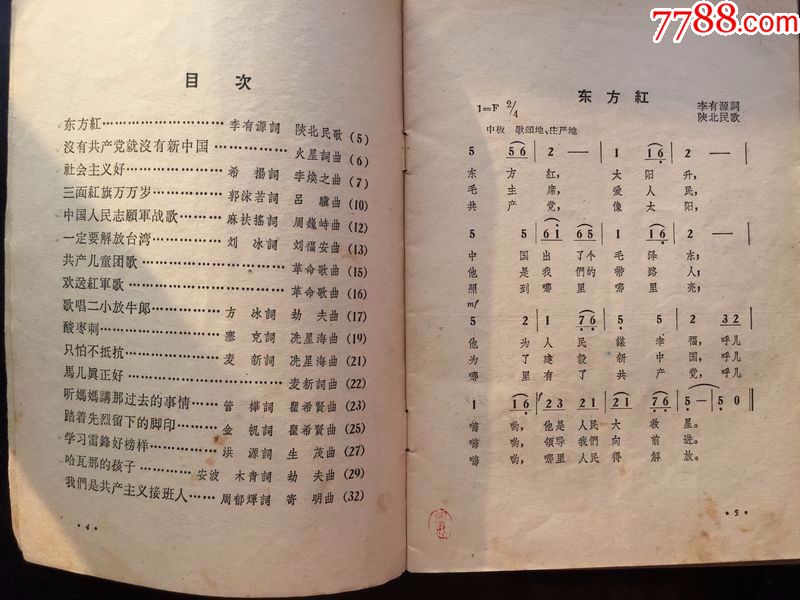 7788.com
中国收藏热线
目次
东方紅……………李有源詞 陝北民歌(5)
沒有共产党就沒有新中国………火星詞曲(6)
社会主义好……………希揚詞 李煥之曲(7)
三面紅旗万万岁………郭沫若詞 呂驥曲(10)
中国人民志願軍战歌……麻扶搖詞 周巍峙曲(12)
一定要解放台湾………刘冰詞 刘福安曲(13)
共产儿童团歌……………革命歌曲(15)
欢送紅軍歌……………革命歌曲(16)
歌唱二小放牛郎………方冰詞 劫夫曲(17)
酸枣刺……………塞克詞 冼星海曲(19)
只怕不抵抗……………麦新詞 冼星海曲(21)
馬儿眞正好……………麦新詞曲(22)
听媽媽講那过去的事情……管樺詞 瞿希賢曲(23)
踏着先烈留下的脚印……金帆詞 瞿希賢曲(25)
学习雷鋒好榜样………洪源詞 生茂曲(27)
哈瓦那的孩子………安波 木青詞 劫夫曲(29)
我們是共产主义接班人……周郁輝詞 寄明曲(32)
·4·
东方紅
1=F 2/4
李有源詞
陝北民歌
中板 歌頌地、庄严地
5 56 | 2 — | 1 16 | 2 — |
东方紅，太阳升，
毛主席，爱人民，
共产党，像太阳，
5 5 | 61 65 | 1 16 | 2 — |
中国出了个毛泽东，
他是我們的带路人，
照到哪里哪里亮，
mf
5 2 | 1 76 | 5 5 | 2 32 |
他为人民謀幸福，呼儿
为了建設新中国，呼儿
哪里有了共产党，呼儿
1 16 | f 23 21 | 21 76 | 5 — | 5 0 ‖
嗨哟，他是人民大救星。
嗨哟，領导我們向前进。
嗨哟，哪里人民得解放。
·5·